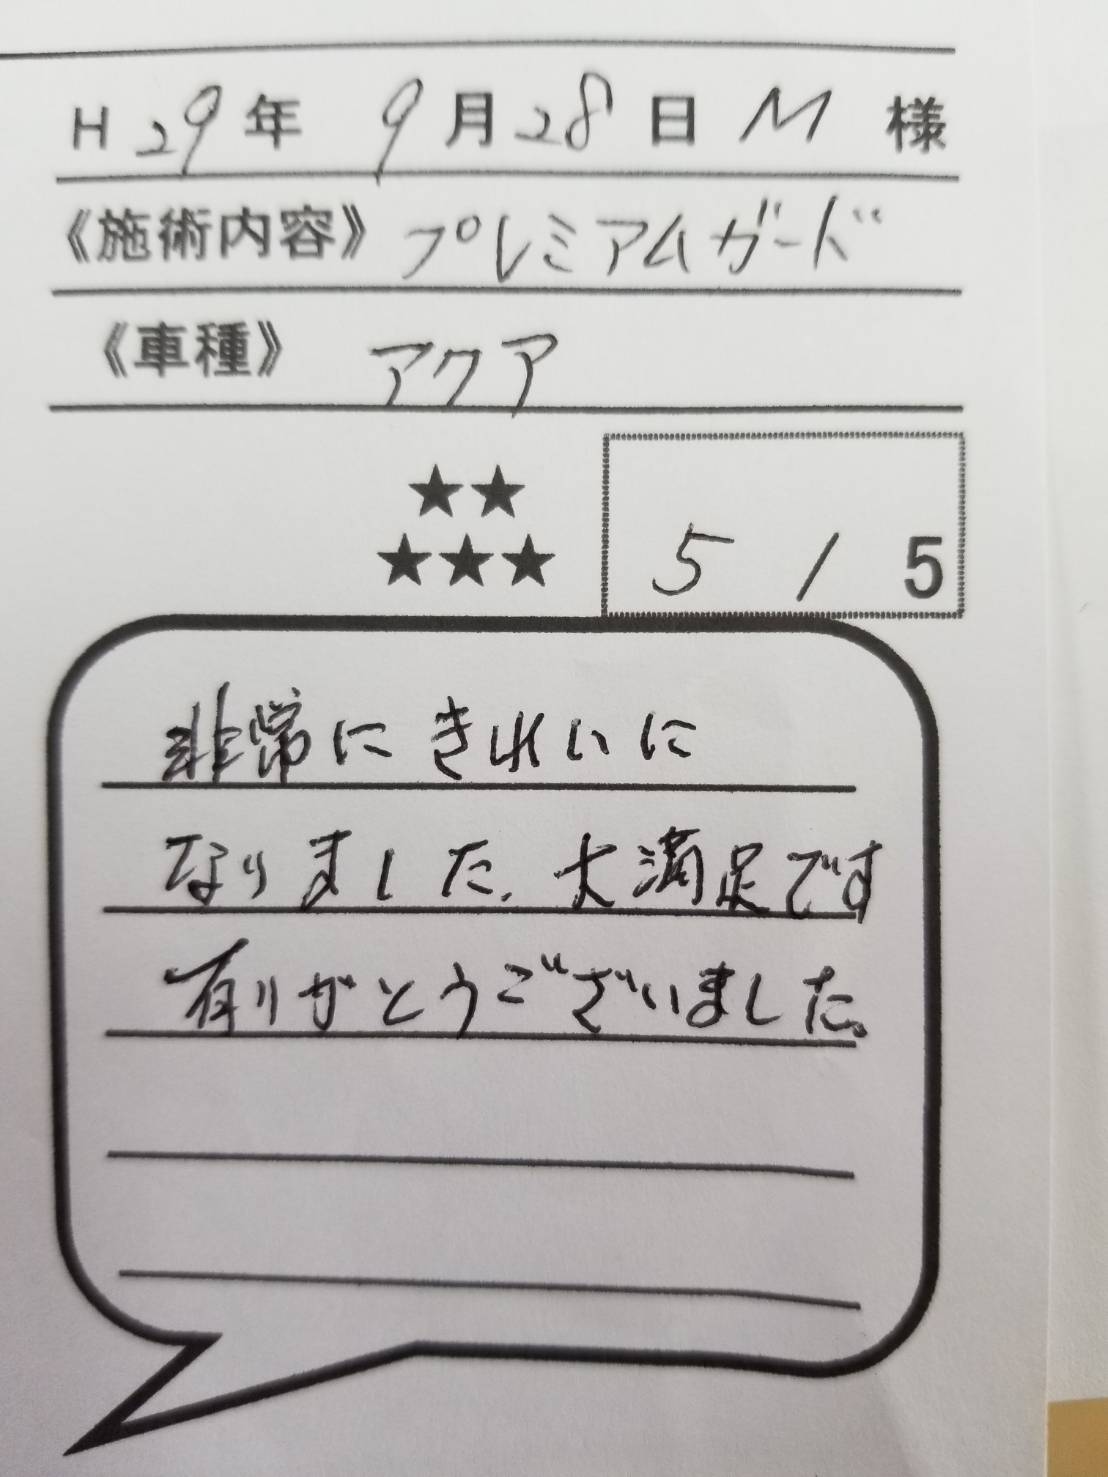 H 29年 9月28日 M 様
《施術内容》プレミアムガード
《車種》 アクア
★★
★★★
5 / 5
非常に きれいに
なりました、大満足です
有りがとうございました。